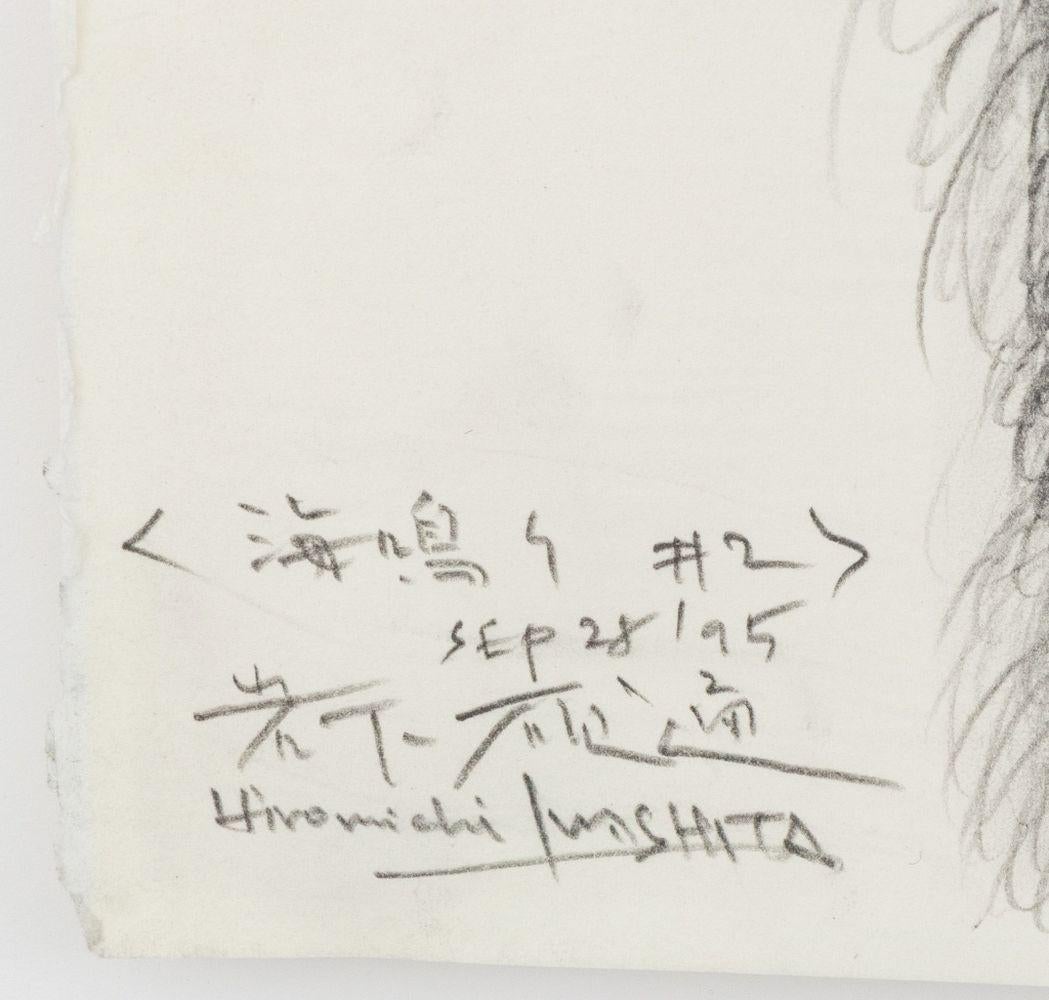 < 海鳴り #2 >
SEP 28 '95
岩下 碩通
Hiromichi IWASHITA